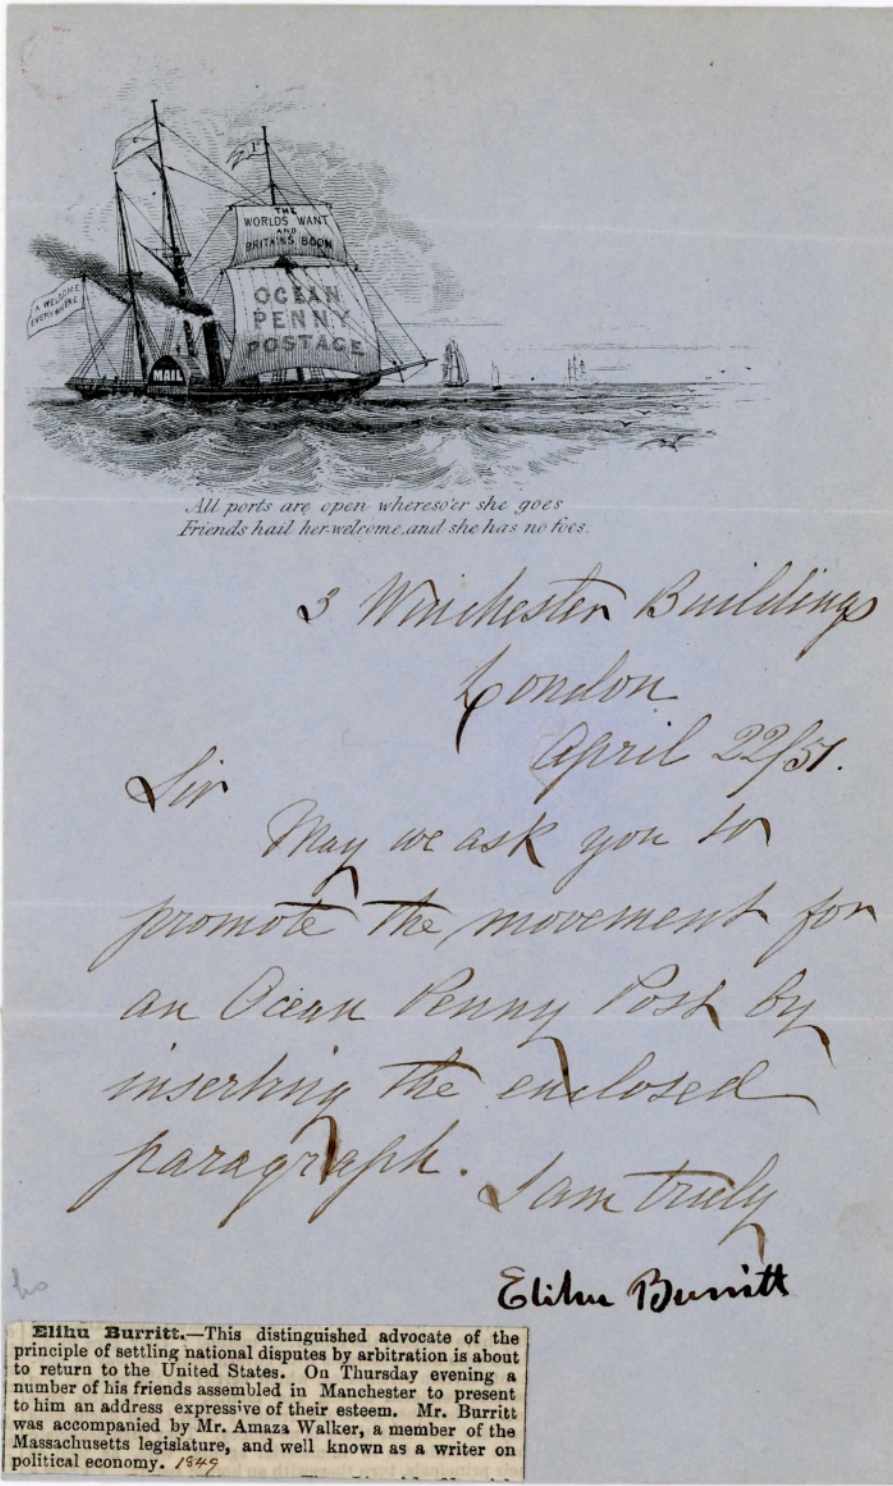 THE
WORLDS WANT
AND
BRITAINS BOON
OCEAN
PENNY
POSTAGE
A WELCOME
EVERYWHERE
MAIL
All ports are open whereso'er she goes
Friends hail her welcome, and she has no foes.
3 Winchester Buildings
London
April 22/51.
Sir
May we ask you to
promote the movement for
an Ocean Penny Post by
inserting the enclosed
paragraph.
I am truly
Elihu Burritt
Elihu Burritt.—This distinguished advocate of the
principle of settling national disputes by arbitration is about
to return to the United States. On Thursday evening a
number of his friends assembled in Manchester to present
to him an address expressive of their esteem. Mr. Burritt
was accompanied by Mr. Amaza Walker, a member of the
Massachusetts legislature, and well known as a writer on
political economy. 1849